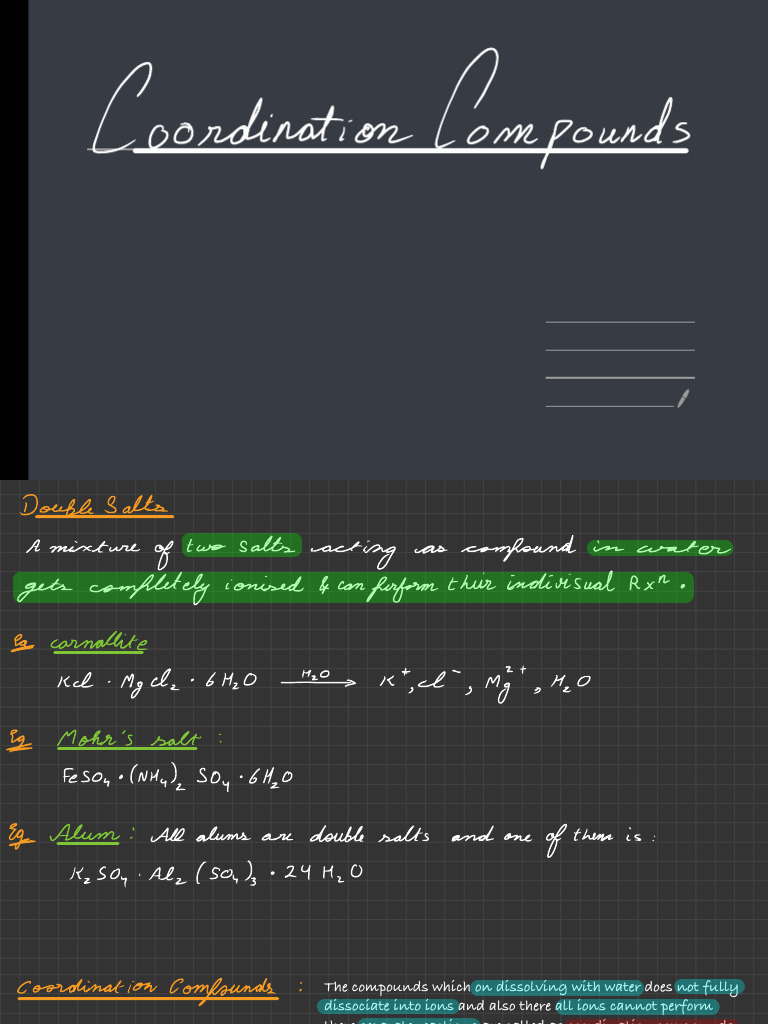 Coordination Compounds
Double Salts
A mixture of two salts acting as compound in water
gets completely ionised & can perform their indivisual Rxⁿ.
Eg carnallite
KCl · MgCl₂ · 6H₂O —H₂O→ K⁺, Cl⁻, Mg²⁺, H₂O
Eg Mohr's salt :
FeSO₄ · (NH₄)₂ SO₄ · 6H₂O
Eg Alum : All alums are double salts and one of them is :
K₂SO₄ · Al₂ (SO₄)₃ · 24 H₂O
Coordination Compounds : The compounds which on dissolving with water does not fully
dissociate into ions and also there all ions cannot perform